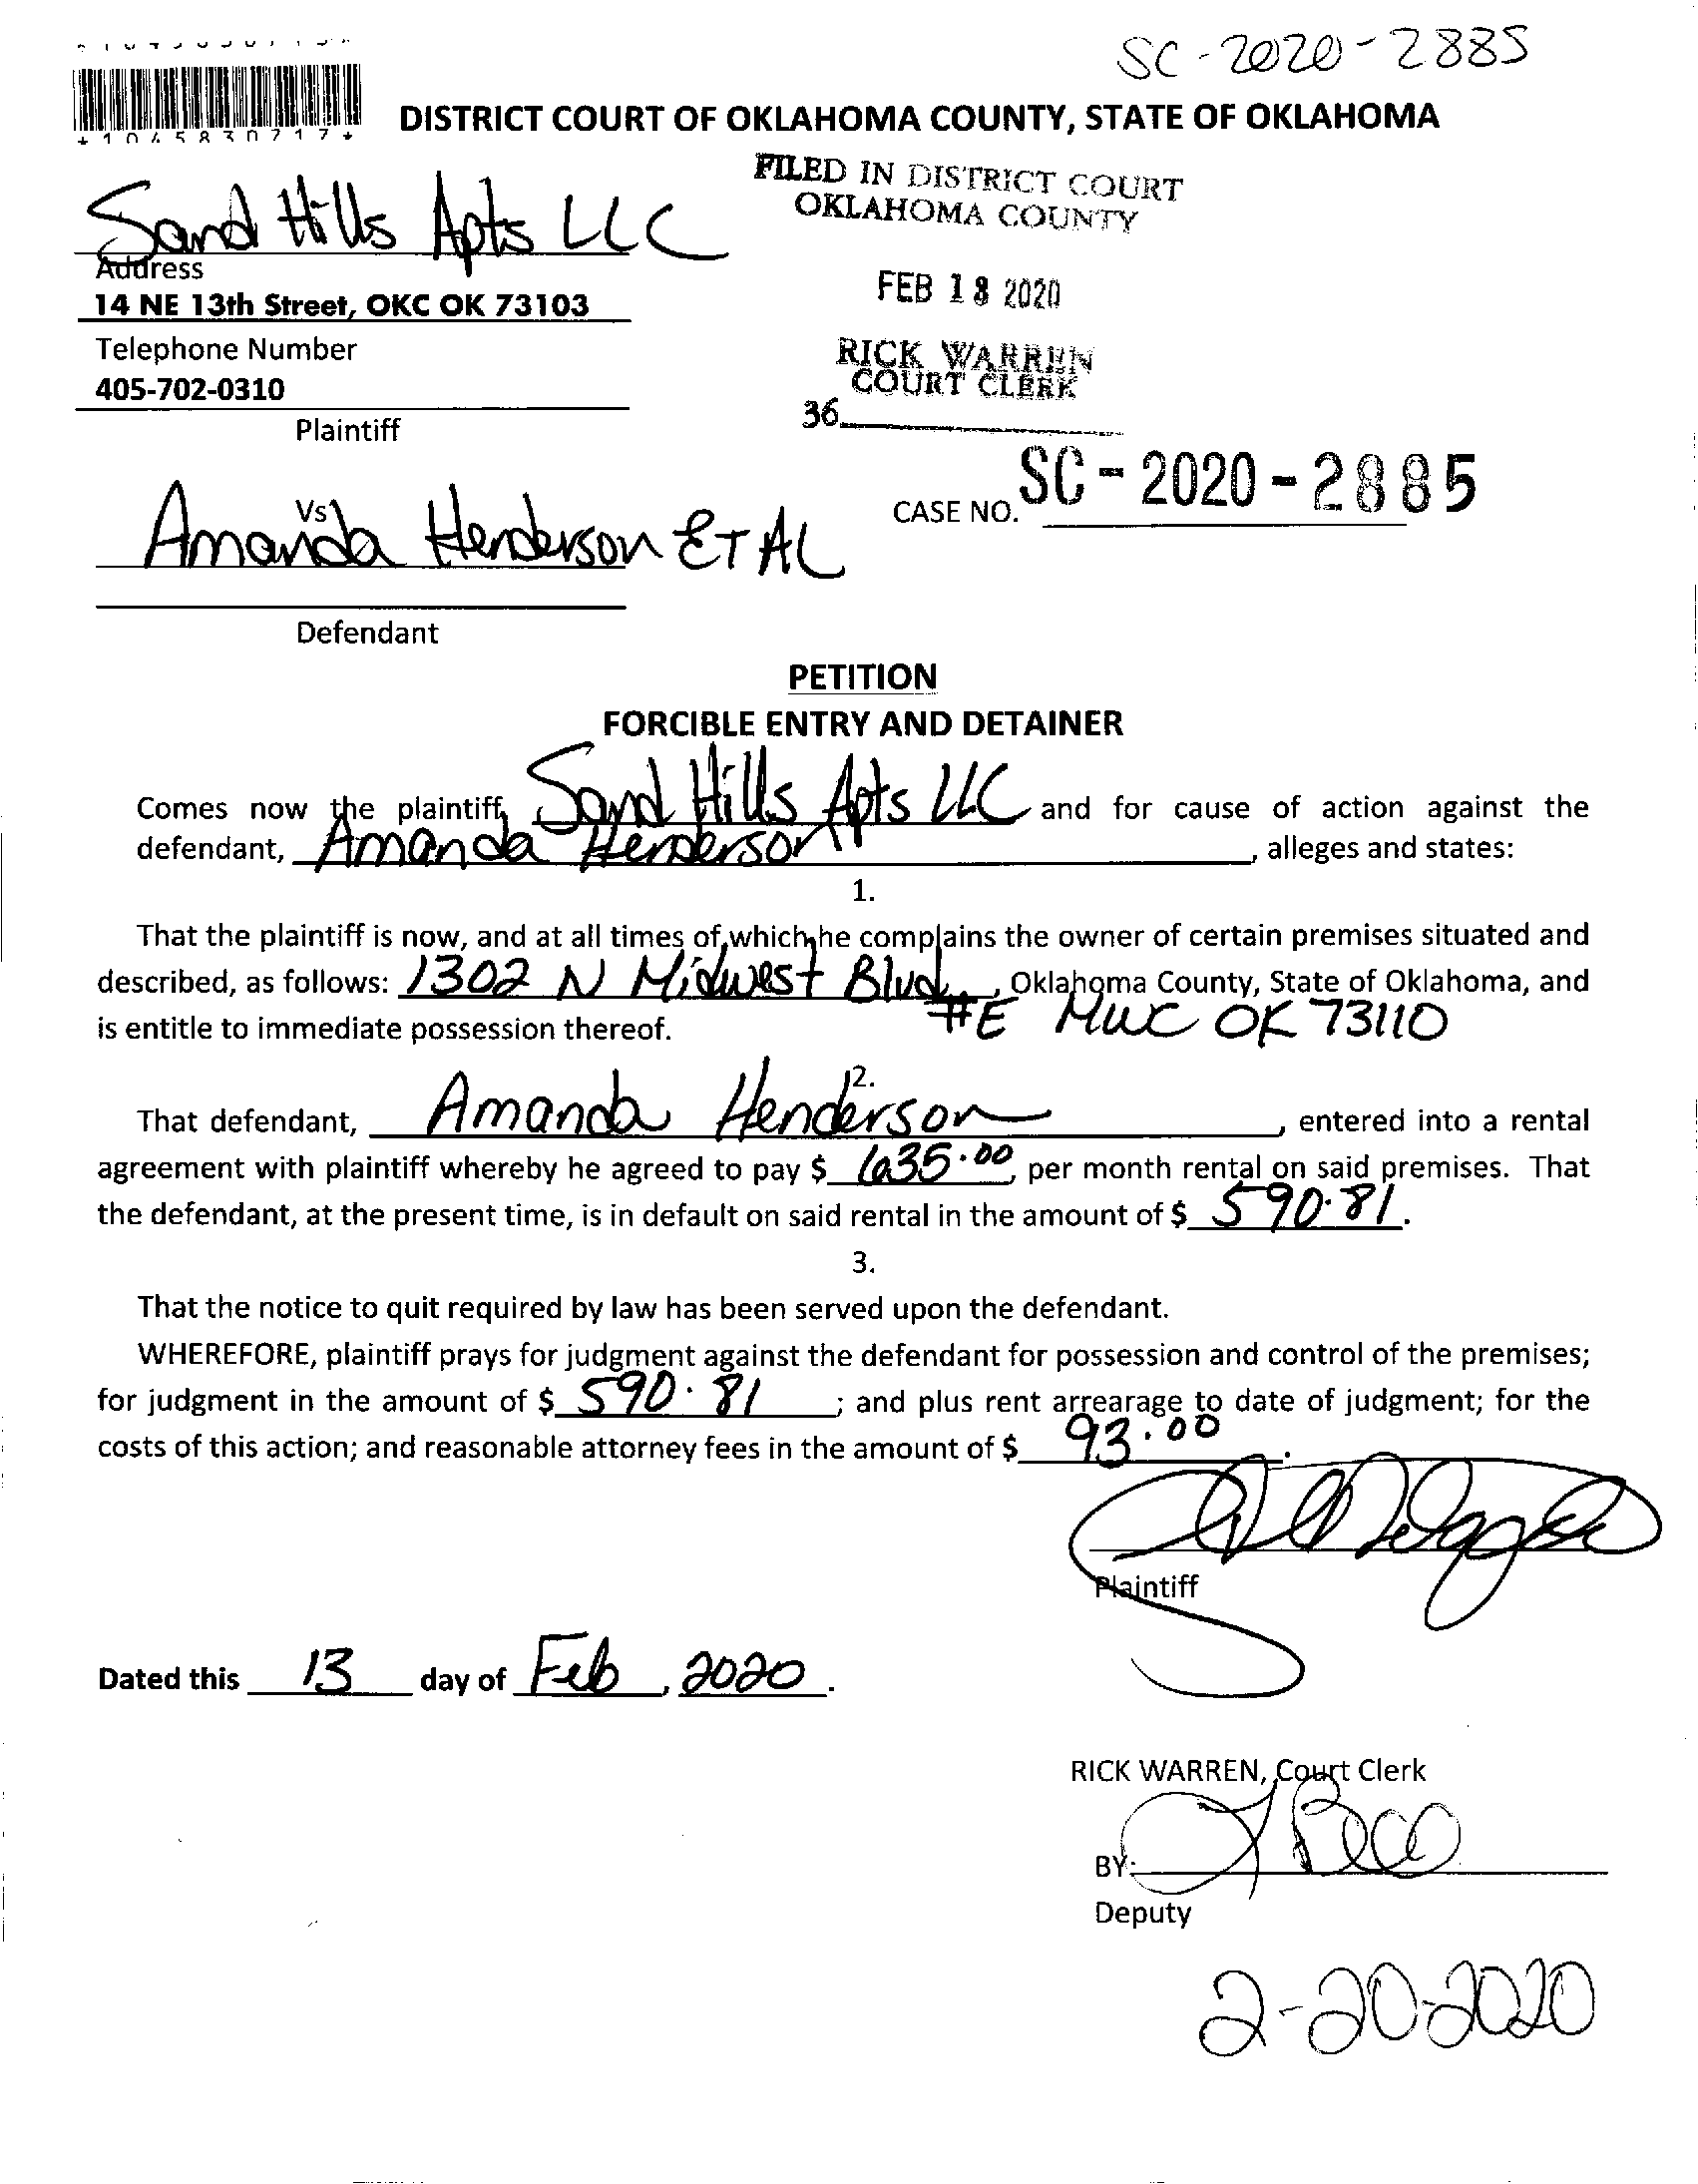 SC-2020-2885
*1045830717*
DISTRICT COURT OF OKLAHOMA COUNTY, STATE OF OKLAHOMA
FILED IN DISTRICT COURT
OKLAHOMA COUNTY
Sand Hills Apts LLC
Address
14 NE 13th Street, OKC OK 73103
FEB 18 2020
Telephone Number
405-702-0310
RICK WARREN
COURT CLERK
36
Plaintiff
CASE NO. SC-2020-2885
Vs
Amanda Henderson ET AL
Defendant
PETITION
FORCIBLE ENTRY AND DETAINER
Comes now the plaintiff, Sand Hills Apts LLC and for cause of action against the
defendant, Amanda Henderson, alleges and states:
1.
That the plaintiff is now, and at all times of which he complains the owner of certain premises situated and
described, as follows: 1302 N Midwest Blvd, Oklahoma County, State of Oklahoma, and
is entitle to immediate possession thereof. #E MWC OK 73110
2.
That defendant, Amanda Henderson, entered into a rental
agreement with plaintiff whereby he agreed to pay $ 635.00, per month rental on said premises. That
the defendant, at the present time, is in default on said rental in the amount of $ 590.81.
3.
That the notice to quit required by law has been served upon the defendant.
WHEREFORE, plaintiff prays for judgment against the defendant for possession and control of the premises;
for judgment in the amount of $ 590.81; and plus rent arrearage to date of judgment; for the
costs of this action; and reasonable attorney fees in the amount of $ 93.00.
Plaintiff
Dated this 13 day of Feb, 2020.
RICK WARREN, Court Clerk
BY:
Deputy
2-20-2020